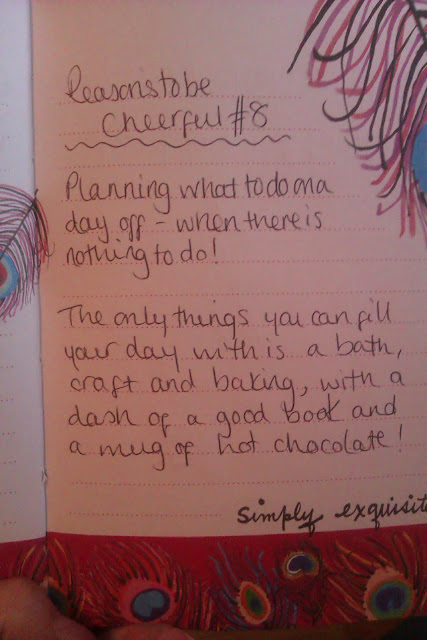 Reasons to be
Cheerful #8
Planning what to do on a
day off - when there is
nothing to do!
The only things you can fill
your day with is a bath,
craft and baking, with a
dash of a good book and
a mug of hot chocolate!
Simply exquisite